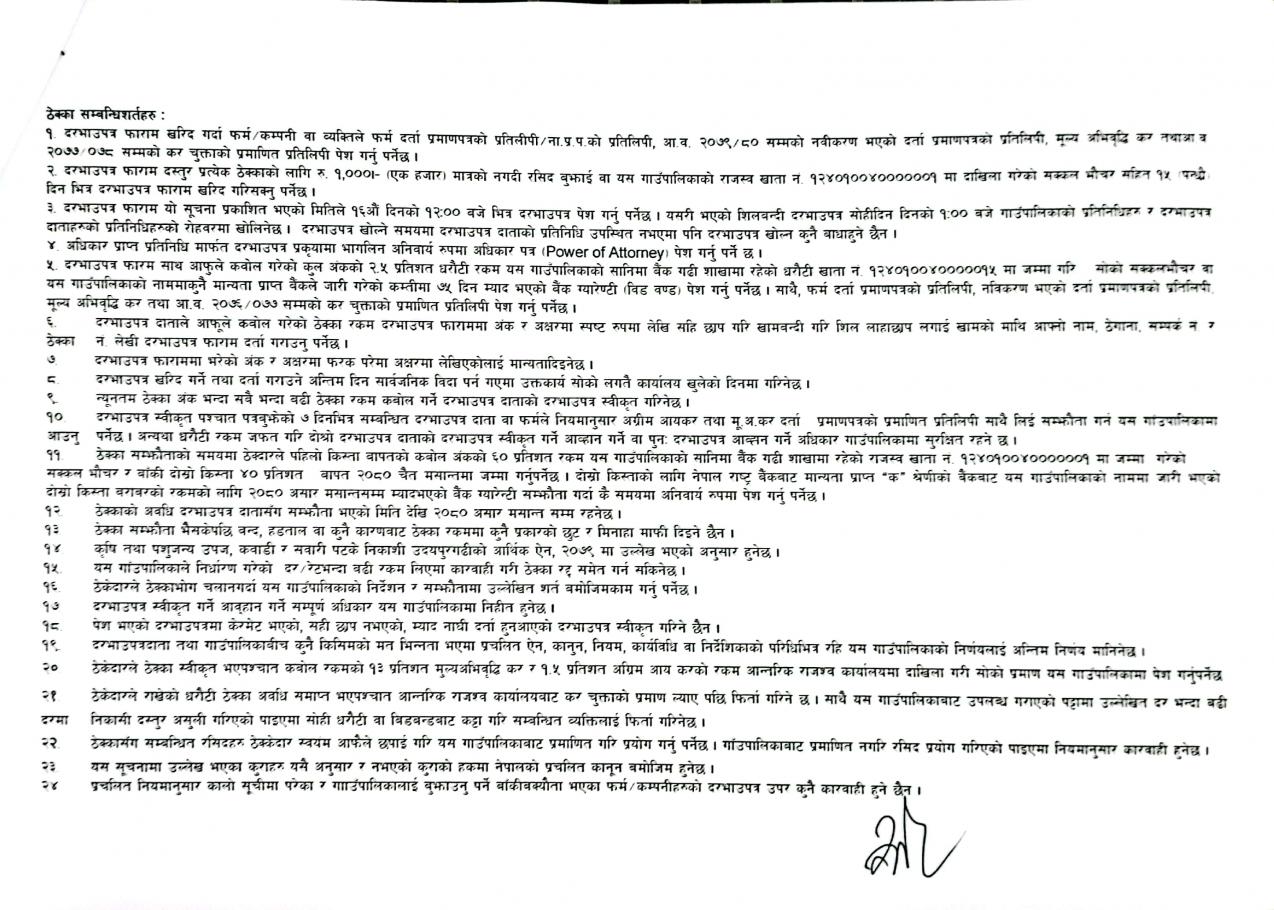 ठेक्का सम्बन्धिशर्तहरु :
१. दरभाउपत्र फाराम खरिद गर्दा फर्म/कम्पनी वा व्यक्तिले फर्म दर्ता प्रमाणपत्रको प्रतिलीपी/ना.प्र.प.को प्रतिलिपी, आ.व. २०७९/८० सम्मको नवीकरण भएको दर्ता प्रमाणपत्रको प्रतिलिपी, मूल्य अभिवृद्धि कर तथाआ व
२०७७/०७८ सम्मको कर चुक्ताको प्रमाणित प्रतिलिपी पेश गर्नु पर्नेछ ।
२. दरभाउपत्र फाराम दस्तुर प्रत्येक ठेक्काको लागि रु. १,०००।- (एक हजार) मात्रको नगदी रसिद बुझाई वा यस गाउँपालिकाको राजस्व खाता नं. १२४०१००४०००००००१ मा दाखिला गरेको सक्कल भौचर सहित १५ (पन्ध्रौ)
दिन भित्र दरभाउपत्र फाराम खरिद गरिसक्नु पर्नेछ ।
३. दरभाउपत्र फाराम यो सूचना प्रकाशित भएको मितिले १६औं दिनको १२:०० बजे भित्र दरभाउपत्र पेश गर्नु पर्नेछ । यसरी भएको शिलवन्दी दरभाउपत्र सोहीदिन दिनको १:०० बजे गाउँपालिकाको प्रतिनिधिहरु र दरभाउपत्र
दाताहरुको प्रतिनिधिहरुको रोहवरमा खोलिनेछ । दरभाउपत्र खोल्ने समयमा दरभाउपत्र दाताको प्रतिनिधि उपस्थित नभएमा पनि दरभाउपत्र खोल्न कुनै बाधाहुने छैन ।
४. अधिकार प्राप्त प्रतिनिधि मार्फत दरभाउपत्र प्रकृयामा भागलिन अनिवार्य रुपमा अधिकार पत्र (Power of Attorney) पेश गर्नु पर्ने छ ।
५. दरभाउपत्र फारम साथ आफुले कवोल गरेको कुल अंकको २.५ प्रतिशत धरौटी रकम यस गाउँपालिकाको सानिमा बैंक गढी शाखामा रहेको धरौटी खाता नं. १२४०१००४०००००१५ मा जम्मा गरि सोको सक्कलभौचर वा
यस गाउँपालिकाको नाममाकुनै मान्यता प्राप्त बैंकले जारी गरेको कम्तीमा ७५ दिन म्याद भएको बैंक ग्यारेण्टी (विड वण्ड) पेश गर्नु पर्नेछ । साथै, फर्म दर्ता प्रमाणपत्रको प्रतिलिपी, नविकरण भएको दर्ता प्रमाणपत्रको प्रतिलिपी,
मूल्य अभिवृद्धि कर तथा आ.व. २०७६/०७७ सम्मको कर चुक्ताको प्रमाणित प्रतिलिपी पेश गर्नु पर्नेछ ।
६. दरभाउपत्र दाताले आफूले कबोल गरेको ठेक्का रकम दरभाउपत्र फाराममा अंक र अक्षरमा स्पष्ट रुपमा लेखि सहि छाप गरि खामवन्दी गरि शिल लाहाछाप लगाई खामको माथि आफ्नो नाम, ठेगाना, सम्पर्क नं र
ठेक्का नं. लेखी दरभाउपत्र फाराम दर्ता गराउनु पर्नेछ ।
७. दरभाउपत्र फाराममा भरेको अंक र अक्षरमा फरक परेमा अक्षरमा लेखिएकोलाई मान्यतादिइनेछ ।
८. दरभाउपत्र खरिद गर्ने तथा दर्ता गराउने अन्तिम दिन सार्वजनिक विदा पर्न गएमा उक्तकार्य सोको लगतै कार्यालय खुलेको दिनमा गरिनेछ ।
९. न्यूनतम ठेक्का अंक भन्दा सवै भन्दा बढी ठेक्का रकम कवोल गर्ने दरभाउपत्र दाताको दरभाउपत्र स्वीकृत गरिनेछ ।
१०. दरभाउपत्र स्वीकृत पश्चात पत्रबुझेको ७ दिनभित्र सम्बन्धित दरभाउपत्र दाता वा फर्मले नियमानुसार अग्रीम आयकर तथा मू.अ.कर दर्ता प्रमाणपत्रको प्रमाणित प्रतिलिपी साथै लिई सम्झौता गर्न यस गाउँपालिकामा
आउनु पर्नेछ । अन्यथा धरौटी रकम जफत गरि दोश्रो दरभाउपत्र दाताको दरभाउपत्र स्वीकृत गर्ने आव्हान गर्ने वा पुनः दरभाउपत्र आव्हान गर्ने अधिकार गाउँपालिकामा सुरक्षित रहने छ ।
११. ठेक्का सम्झौताको समयमा ठेक्दारले पहिलो किस्ता बापतको कवोल अंकको ६० प्रतिशत रकम यस गाउँपालिकाको सानिमा बैंक गढी शाखामा रहेको राजस्व खाता नं. १२४०१००४०००००००१ मा जम्मा गरेको
सक्कल भौचर र बांकी दोस्रो किस्ता ४० प्रतिशत बापत २०८० चैत मसान्तमा जम्मा गर्नुपर्नेछ । दोस्रो किस्ताको लागि नेपाल राष्ट्र बैंकबाट मान्यता प्राप्त "क" श्रेणीको बैंकबाट यस गाउँपालिकाको नाममा जारी भएको
दोस्रो किस्ता बराबरको रकमको लागि २०८० असार मसान्तसम्म म्यादभएको बैंक ग्यारेन्टी सम्झौता गर्दा कै समयमा अनिवार्य रुपमा पेश गर्नु पर्नेछ ।
१२. ठेक्काको अवधि दरभाउपत्र दातासंग सम्झौता भएको मिति देखि २०८० असार मसान्त सम्म रहनेछ ।
१३ ठेक्का सम्झौता भैसकेपछि बन्द, हडताल वा कुनै कारणबाट ठेक्का रकममा कुनै प्रकारको छुट र मिनाहा माफी दिइने छैन ।
१४ कृषि तथा पशुजन्य उपज, कवाडी र सवारी पटके निकाशी उदयपुरगढीको आर्थिक ऐन, २०७९ मा उल्लेख भएको अनुसार हुनेछ ।
१५. यस गाउँपालिकाले निर्धारण गरेको दर/रेटभन्दा बढी रकम लिएमा कारवाही गरी ठेक्का रद्द समेत गर्न सकिनेछ ।
१६. ठेकेदारले ठेक्काभोग चलानगर्दा यस गाउँपालिकाको निर्देशन र सम्झौतामा उल्लेखित शर्त बमोजिमकाम गर्नु पर्नेछ ।
१७ दरभाउपत्र स्वीकृत गर्ने आवहान गर्ने सम्पूर्ण अधिकार यस गाउँपालिकामा निहीत हुनेछ ।
१८. पेश भएको दरभाउपत्रमा केरमेट भएको, सही छाप नभएको, म्याद नाघी दर्ता हुनआएको दरभाउपत्र स्वीकृत गरिने छैन ।
१९. दरभाउपत्रदाता तथा गाउँपालिकाबीच कुनै किसिमको मत भिन्नता भएमा प्रचलित ऐन, कानुन, नियम, कार्यविधि वा निर्देशिकाको परिधिभित्र रहि यस गाउँपालिकाको निर्णयलाई अन्तिम निर्णय मानिनेछ ।
२० ठेकेदारले ठेक्का स्वीकृत भएपश्चात कवोल रकमको १३ प्रतिशत मुल्यअभिवृद्धि कर र १.५ प्रतिशत अग्रिम आय करको रकम आन्तरिक राजश्व कार्यालयमा दाखिला गरी सोको प्रमाण यस गाउँपालिकामा पेश गर्नुपर्नेछ
२१ ठेकेदारले राखेको धरौटी ठेक्का अवधि समाप्त भएपश्चात आन्तरिक राजश्व कार्यालयवाट कर चुक्ताको प्रमाण ल्याए पछि फिर्ता गरिने छ । साथै यस गाउँपालिकाबाट उपलब्ध गराएको पट्टामा उल्लेखित दर भन्दा बढी
दरमा निकासी दस्तुर असुली गरिएको पाइएमा सोही धरौटी वा बिडबन्डबाट कट्टा गरि सम्बन्धित व्यक्तिलाई फिर्ता गरिनेछ ।
२२. ठेक्कासंग सम्बन्धित रसिदहरु ठेक्केदार स्वयंम आफैले छपाई गरि यस गाउँपालिकाबाट प्रमाणित गरि प्रयोग गर्नु पर्नेछ । गाउँपालिकाबाट प्रमाणित नगरि रसिद प्रयोग गरिएको पाइएमा नियमानुसार कारवाही हुनेछ ।
२३. यस सूचनामा उल्लेख भएका कुराहरु यसै अनुसार र नभएको कुराको हकमा नेपालको प्रचलित कानून बमोजिम हुनेछ ।
२४ प्रचलित नियमानुसार कालो सूचीमा परेका र गााउँपालिकालाई बुझाउनु पर्ने बाँकीबक्यौता भएका फर्म/कम्पनीहरुको दरभाउपत्र उपर कुनै कारवाही हुने छैन ।